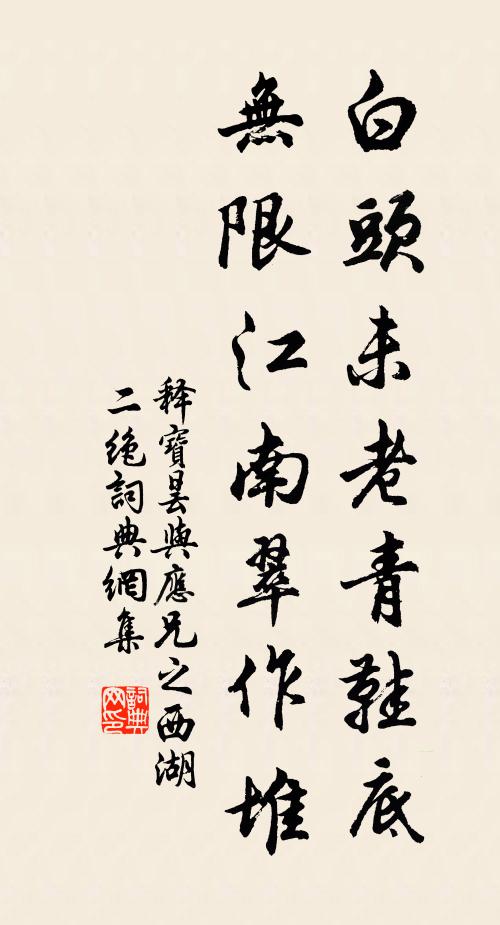 白頭未老青鞋底
無限江南翠作堆
释寶曇與應兄之西湖
二绝詞典網集
詞典
网印